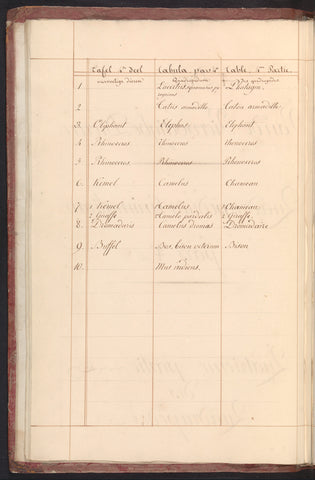 Tafel 1e deel Tabula pars 1a Table, 1e Partie.
viervoetige dieren Quadrupedum des quadrupedes
1
2
3. Olifant Elephas Elephant
4 Rhinoceros Rhinoceros rhinoceros
5 Rhinoceros Rhinoceros Rhinoceros
6. Kemel Camelus Chameau
7 1 Kemel 1 Camelus 1 Chameau
2. Giraffe 2 Camelo pardalis 2 Giraffe
8. Dromadaris Camelus dromas Dromadaire
9. Buffel Bos, Bison veterum Bison
10.